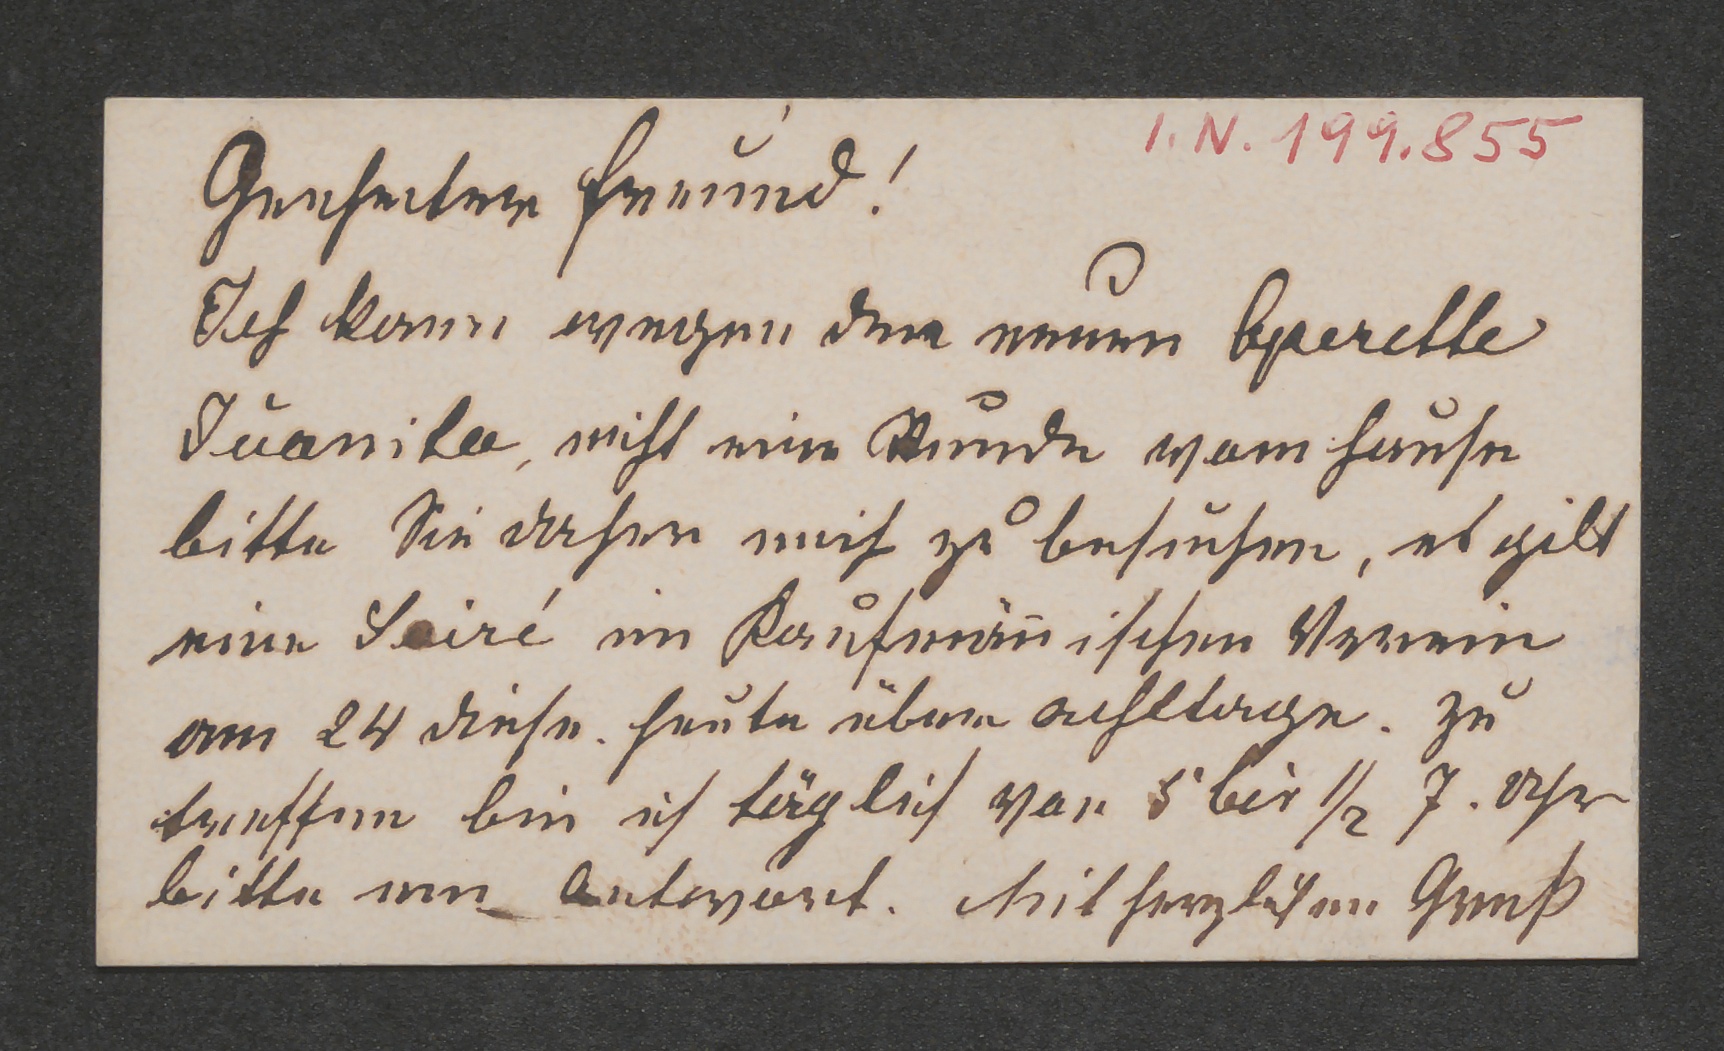 I.N. 199.855
Geehrter Freund!
Ich kann wegen der neuen Operette
Juanita, nicht eine Stunde vom Hause
bitte Sie daher mich zu besuchen, es gilt
eine Soiré im Kaufmänischen Verein
am 24 diese. heute über achttage. Zu
treffen bin ich täglich von 5 bis 1/2 7. Uhr
bitte um Antwort. Mit herzlichen Gruß